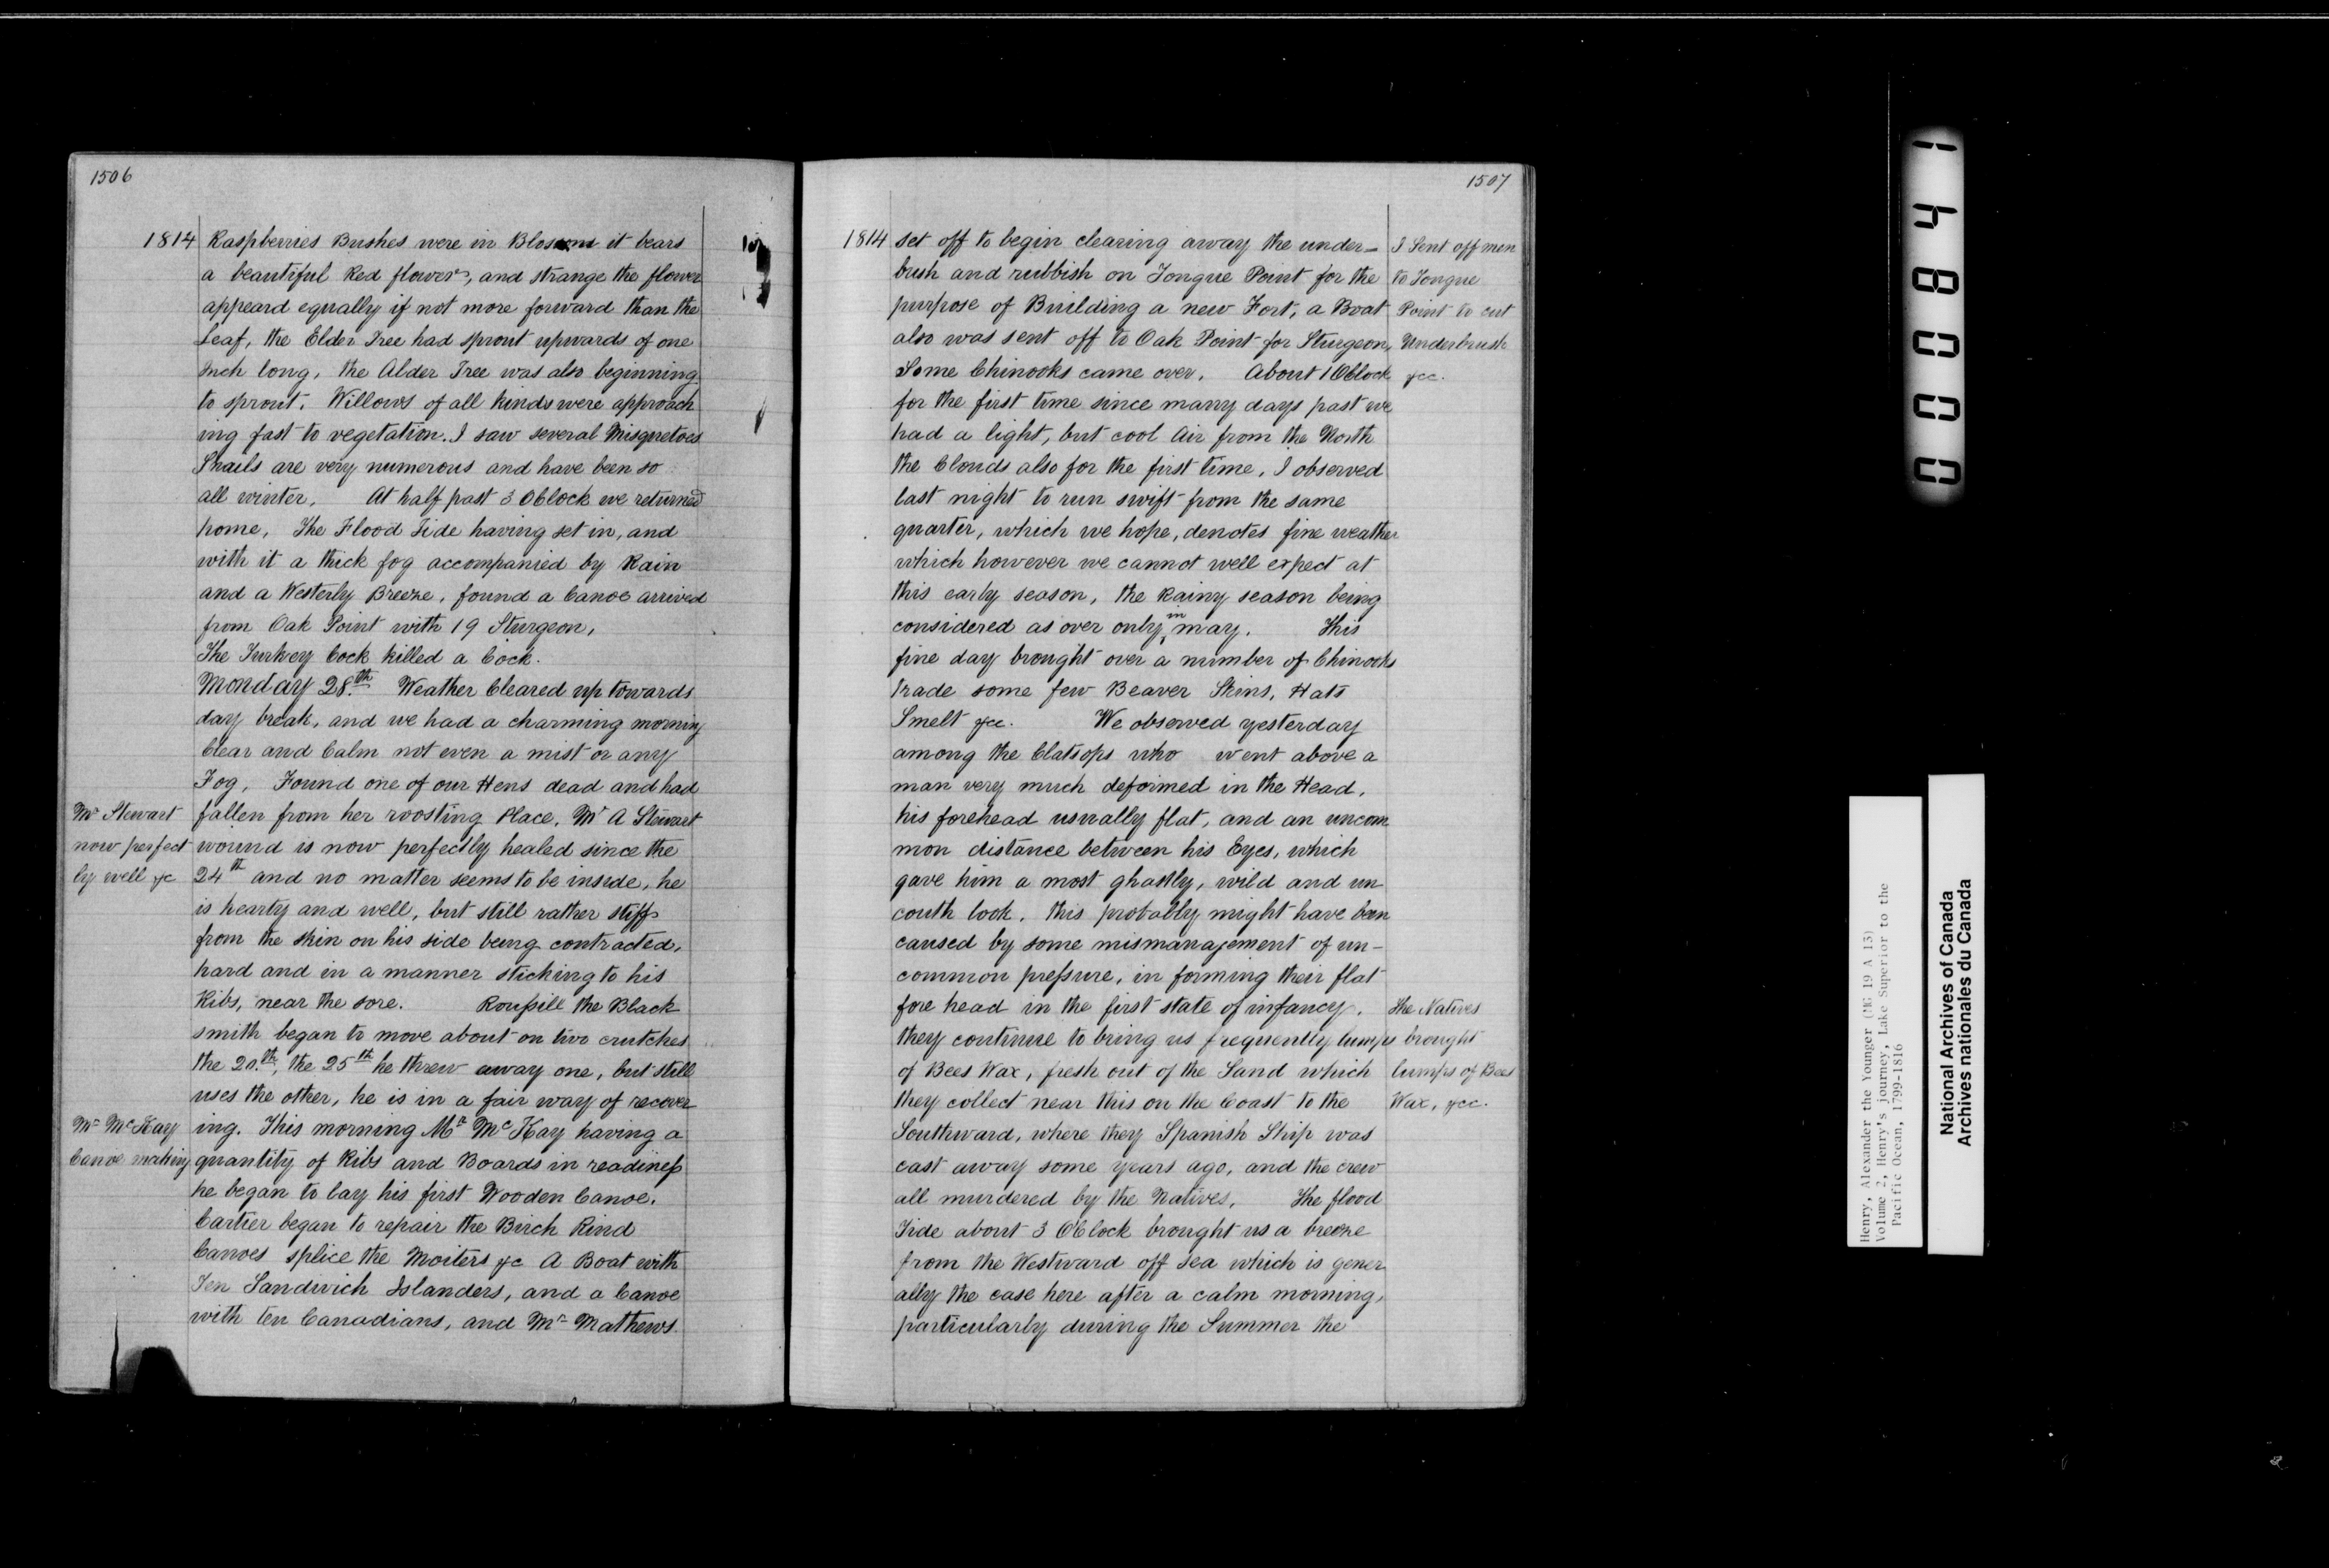 1506
1814
Raspberries Bushes were in Blossoms it bears
a beautiful Red flower, and strange the flower
appeard equally if not more forward than the
Leaf, the Elder Tree had sprout upwards of one
Inch long, the Alder Tree was also beginning
to sprout. Willows of all kinds were approach
ing fast to vegetation. I saw several Misquetoes
Snails are very numerous and have been so
all winter. At half past 3 OClock we returned
home, The Flood Tide having set in, and
with it a thick fog accompanied by Rain
and a Westerly Breeze, found a Canoe arrived
from Oak Point with 19 Sturgeon,
The Turkey Cock killed a Cock.
Monday 28th Weather Cleared up towards
day break, and we had a charming morning
Clear and Calm not even a mist or any
Fog, Found one of our Hens dead and had
fallen from her roosting Place, Mr A Stewart
wound is now perfectly healed since the
24th and no matter seems to be inside, he
is hearty and well, but still rather stiff
from the skin on his side being contracted,
hard and in a manner sticking to his
Ribs, near the sore. Roussill the Black
smith began to move about on two crutches
the 20th, the 25th he threw away one, but still
uses the other, he is in a fair way of recover
ing. This morning Mr McKay having a
quantity of Ribs and Boards in readiness
he began to lay his first Wooden Canoe.
Cartier began to repair the Birch Rind
Canoes splice the Moiters &c A Boat with
Ten Sandwich Islanders, and a Canoe
with ten Canadians, and Mr Mathews
Mr Stewart
now perfect
ly well &c
Mr McKay
Canoe making
1507
1814
set off to begin clearing away the under-
bush and rubbish on Tongue Point for the
purpose of Building a new Fort, a Boat
also was sent off to Oak Point for Sturgeon,
Some Chinooks came over. About 1 OClock
for the first time since many days past we
had a light, but cool Air from the North
the Clouds also for the first time, I observed
last night to run swift from the same
quarter, which we hope, denotes fine weather
which however we cannot well expect at
this early season, the Rainy season being
considered as over only in may. This
fine day brought over a number of Chinooks
trade some few Beaver Skins, Hats
Smelt &cc. We observed yesterday
among the Clatsops who went above a
man very much deformed in the Head,
his forehead usually flat, and an uncom
mon distance between his Eyes, which
gave him a most ghastly, wild and un
couth look. this probably might have been
caused by some mismanagement of un-
common pressure, in forming their flat
fore head in the first state of infancy.
they continue to bring us frequently lumps
of Bees Wax, fresh out of the Sand which
they collect near this on the Coast to the
Southward, where they Spanish Ship was
cast away some years ago, and the crew
all murdered by the Natives. The flood
Tide about 3 OClock brought us a breeze
from the Westward off sea which is gener
ally the case here after a calm morning,
particularly during the Summer the
I Sent off men
to Tongue
Point to cut
Underbrush
&cc.
The Natives
brought
lumps of Bees
Wax, &cc.
000841
Henry, Alexander the Younger (MG 19 A 13)
Volume 2, Henry's journey, Lake Superior to the
Pacific Ocean, 1799-1816
National Archives of Canada
Archives nationales du Canada